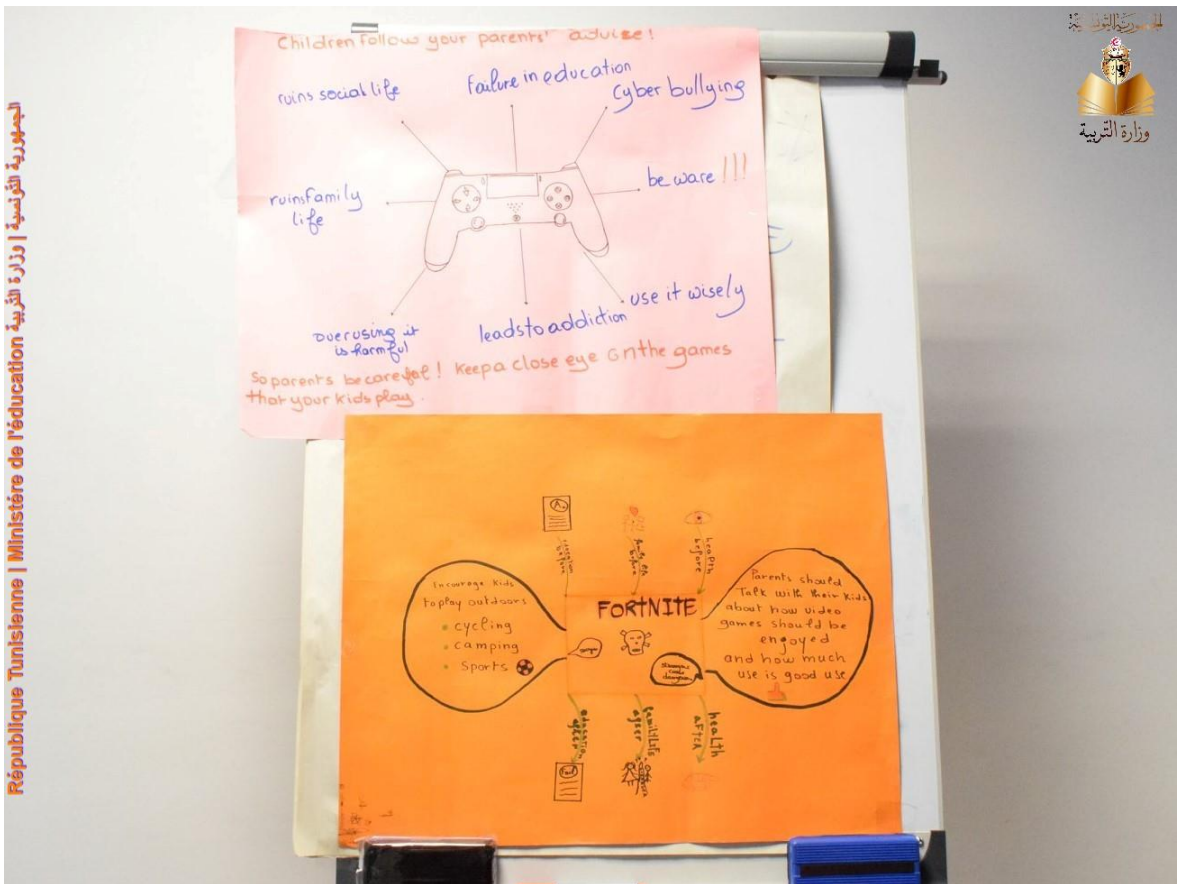 الجمهورية التونسية
وزارة التربية
République Tunisienne | Ministère de l'éducation الجمهورية التونسية | وزارة التربية
Children follow your parents' advise!
ruins social life
Failure in education
cyber bullying
be ware !!!
ruins family
life
use it wisely
leads to addiction
overusing it
is harmful
So parents be careful! Keep a close eye on the games
that your kids play.
A+
education
before
family life
before
health
before
Encourage kids
to play outdoors
cycling
camping
sports
FORTNITE
Parents should
Talk with their kids
about how video
games should be
engoyed
and how much
use is good use
education
after
family life
after
health
after